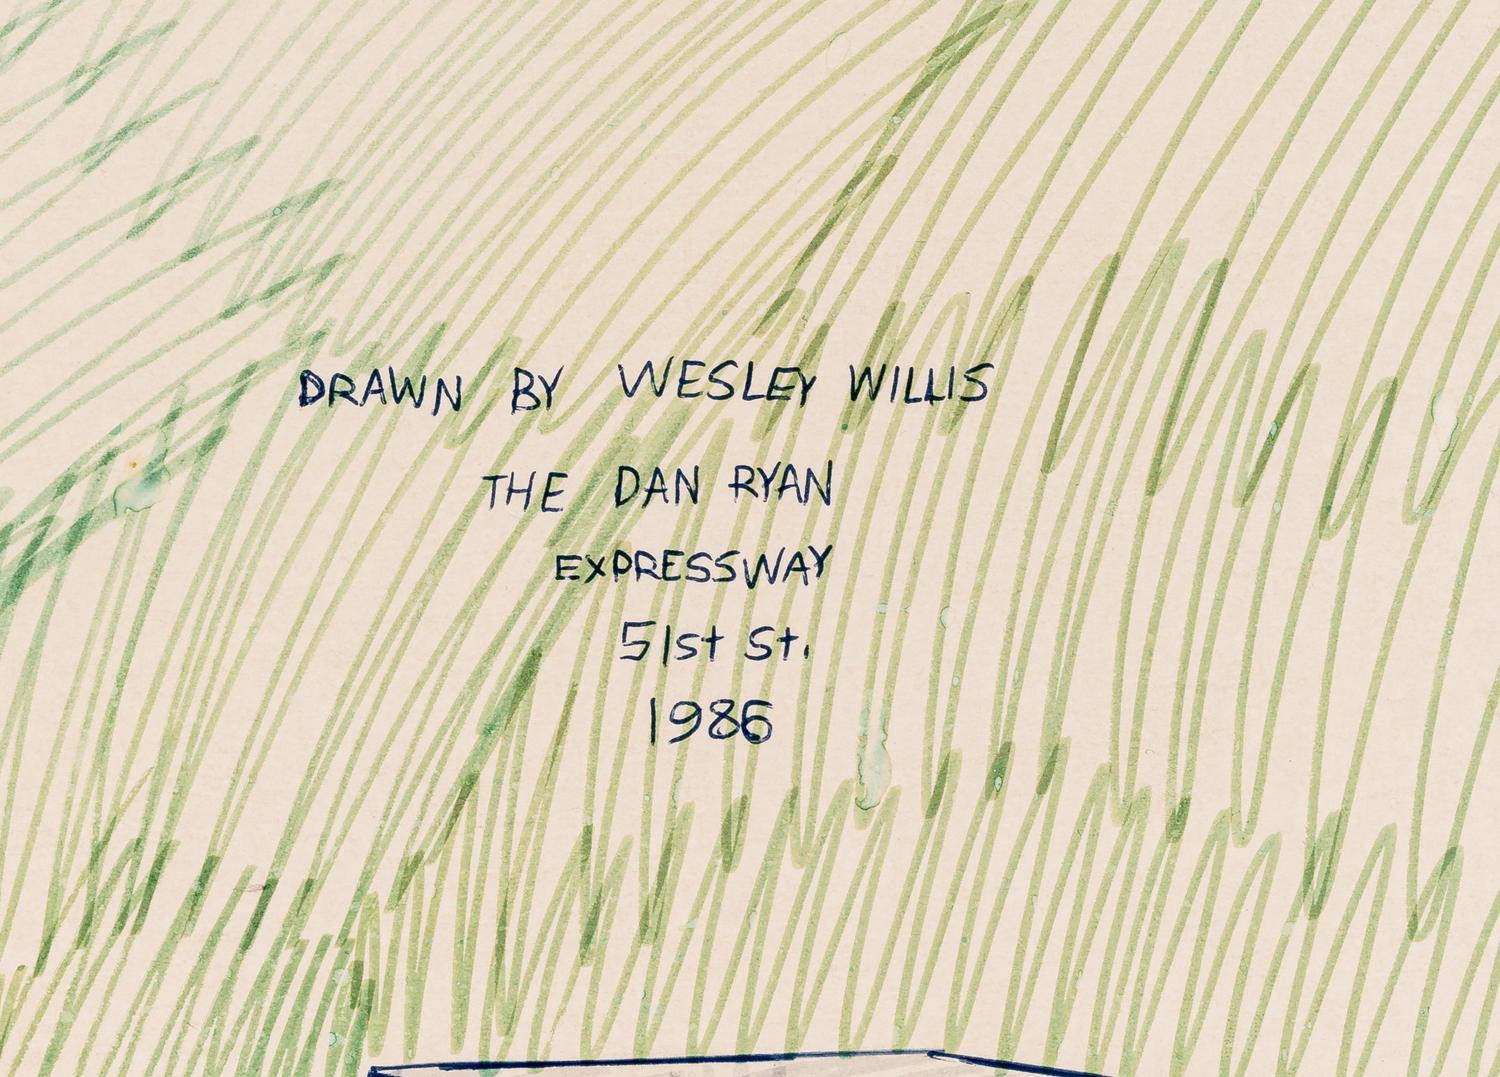 DRAWN BY WESLEY WILLIS
THE DAN RYAN
EXPRESSWAY
51st St.
1986